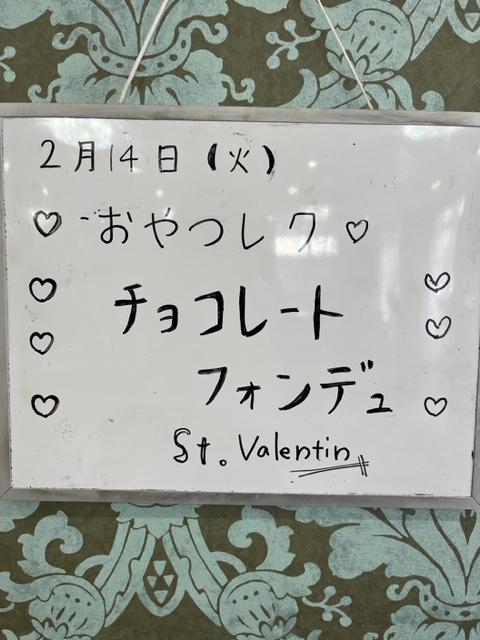 2月14日(火)
♡おやつレク♡
チョコレート
フォンデュ
St. Valentin